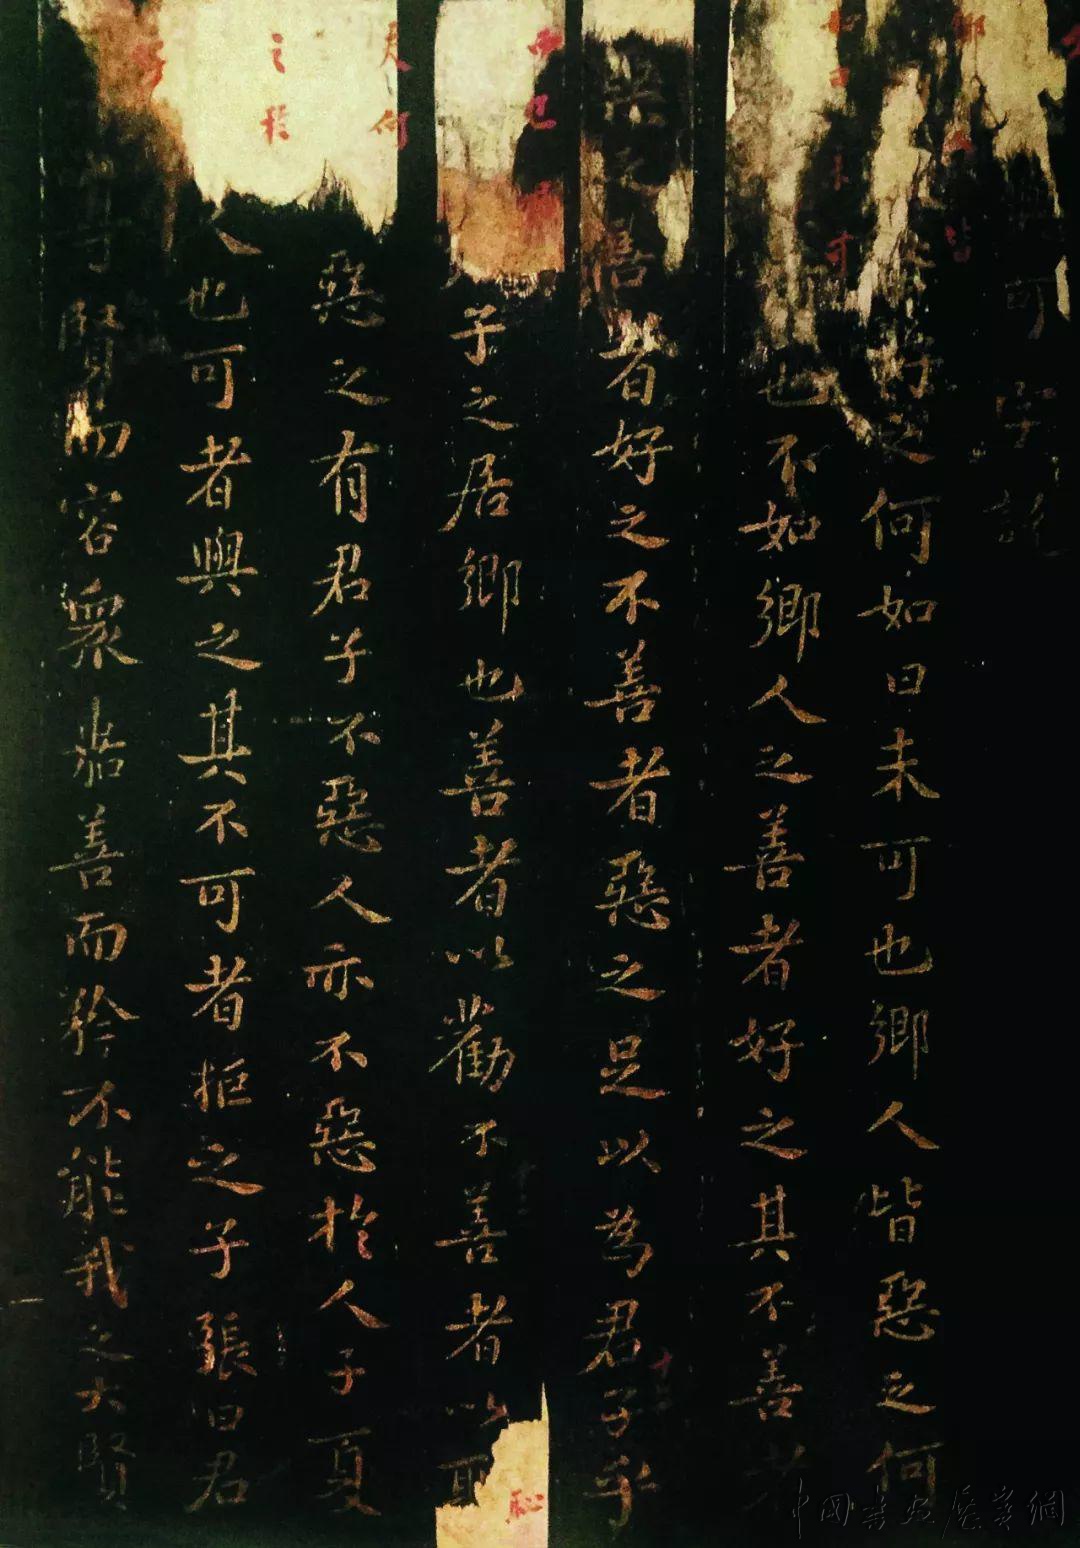 與可字說
鄉人皆好之何如曰未可也鄉人皆惡之何
如曰未可也不如鄉人之善者好之其不善者
惡之善者好之不善者惡之足以為君子乎
子之居鄉也善者以勸不善者以恥
夫何惡之有君子不惡人亦不惡於人子夏
之於人也可者與之其不可者拒之子張曰君
子尊賢而容衆嘉善而矜不能我之大賢
中国书画展赛網